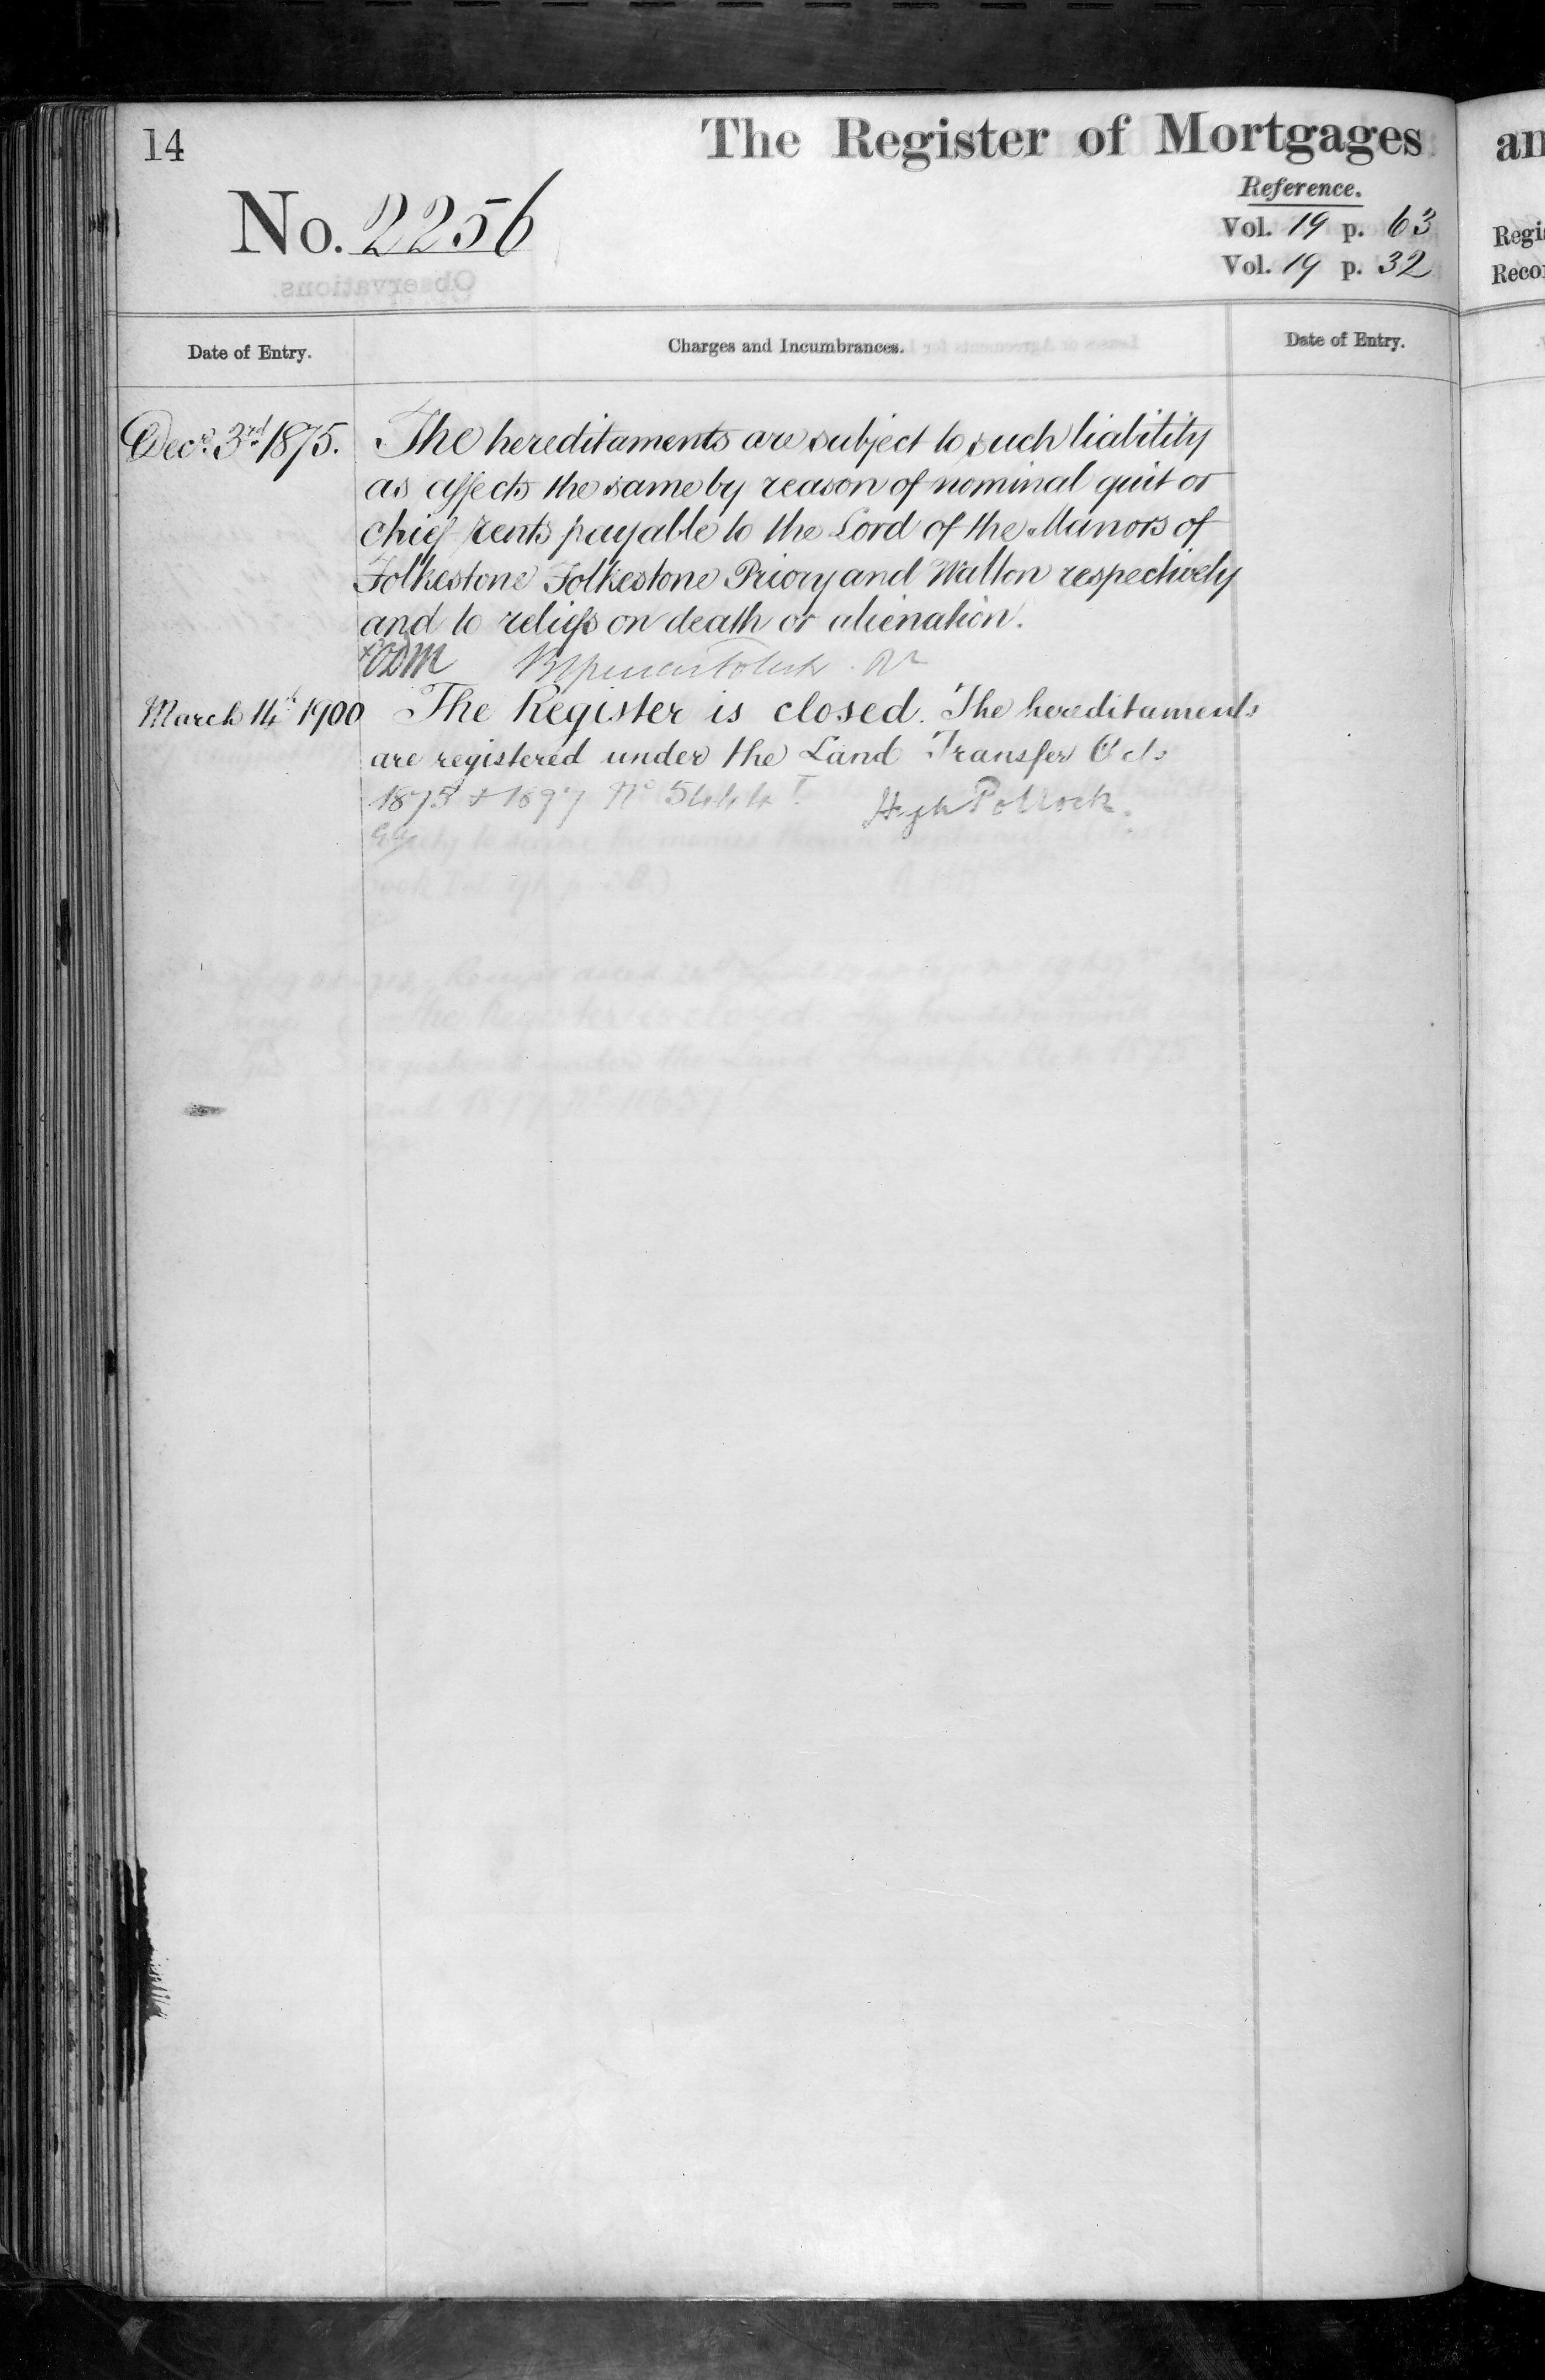 14
The Register of Mortgages
an
Reference.
No. 2256
Vol. 19 p. 63
Regi
Vol. 19 p. 32
Reco
Observations.
Date of Entry.
Charges and Incumbrances.
Date of Entry.
Decr. 3rd 1875.
The hereditaments are subject to such liability
as affects the same by reason of nominal quit or
chief rents payable to the Lord of the Manors of
Folkestone Folkestone Priory and Walton respectively
and to reliefs on death or alienation.
March 14th 1900
The Register is closed. The hereditaments
are registered under the Land Transfer Acts
1875 & 1897 No 5444 Hugh Pollock.